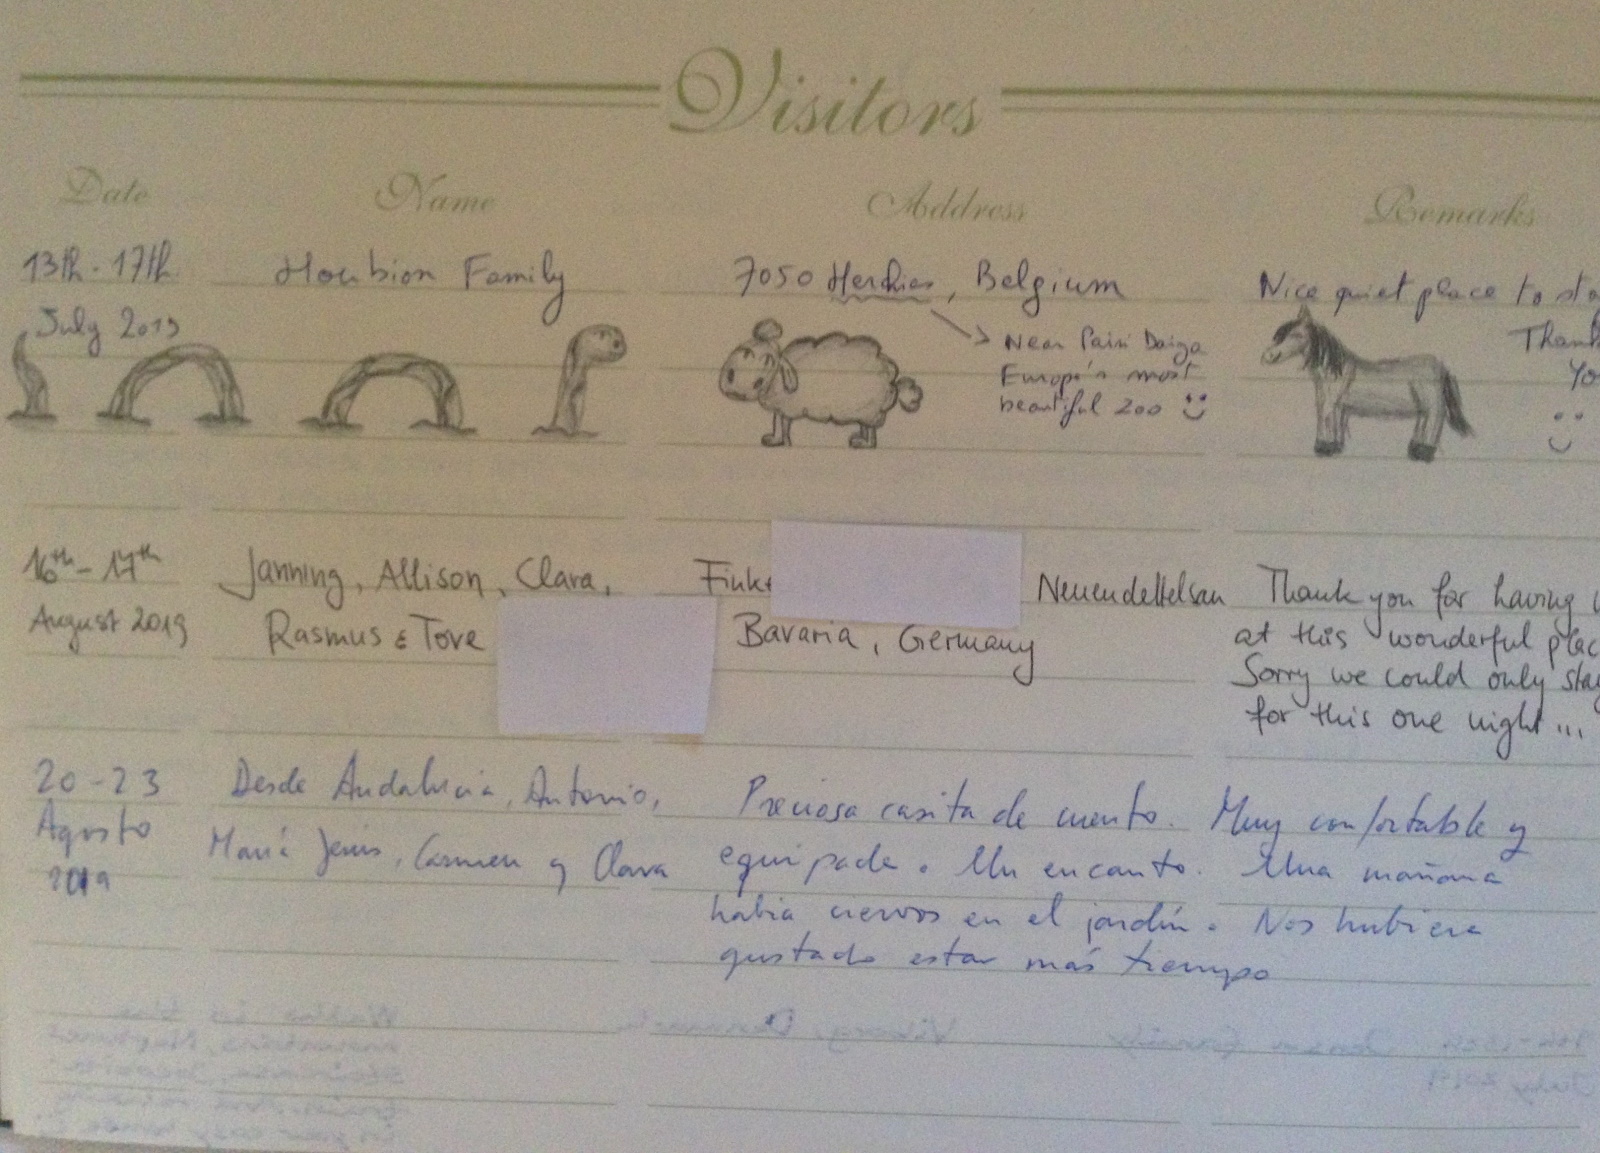 Visitors
Date Name Address Remarks
13th - 17th Houbion Family 7050 Herchies, Belgium Nice quiet place to
July 2019 Near Pairi Daiza Thank
Europe's most
beautiful zoo :)
16th - 17th Janning, Allison, Clara, Neuendettelsau Thank you for having
August 2019 Rasmus & Tove Bavaria, Germany at this wonderful
Sorry we could only
for this one night ...
20-23 Desde Andalucía, Antonio, Preciosa casita de cuento. Muy confortable y
Agosto María Jesús, Carmen y Clara equipada. Un encanto. Una mañana
2019 había ciervos en el jardín. Nos hubiera
gustado estar más tiempo